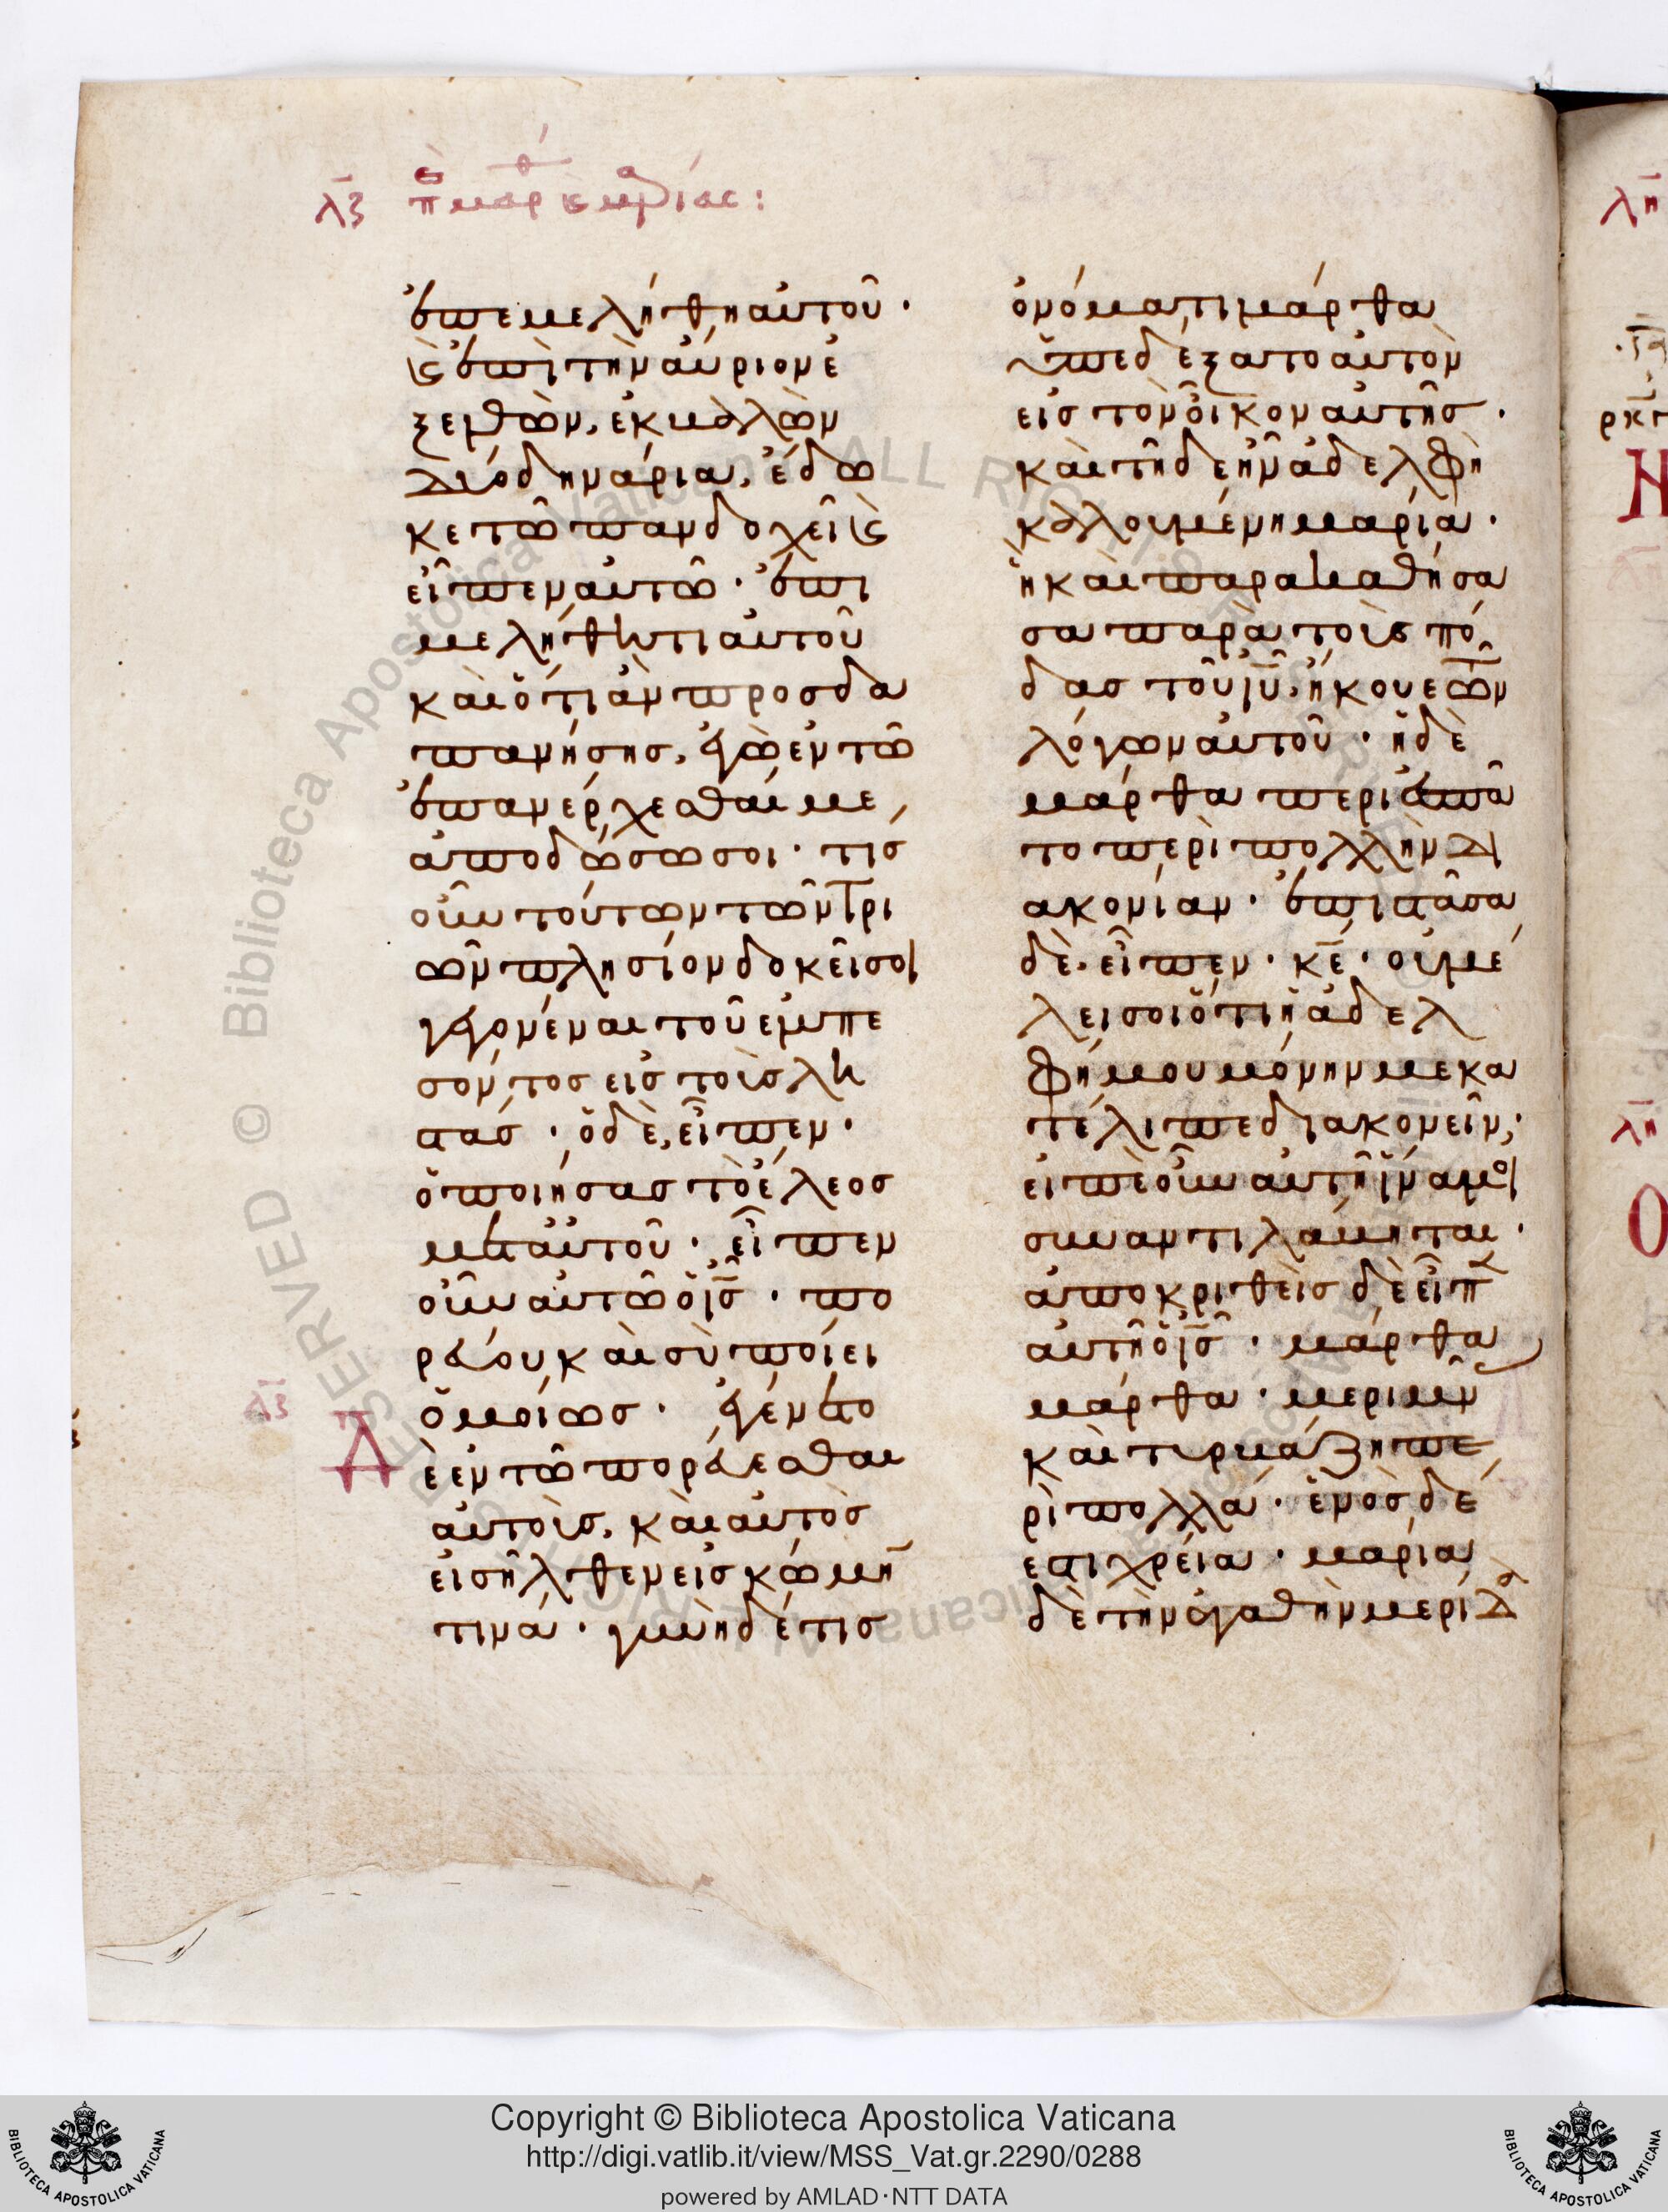 λζ περὶ μάρθ καὶ μαρίας:
ἐπεμελήθη αὐτοῦ·
καὶ ἐπὶ τὴν αὔριον ἐ
ξελθὼν, ἐκβαλὼν
δύο δηνάρια, ἔδω
κε τῶ πανδοχεῖ καὶ
εἶπεν αὐτῶ· ἐπι
μελήθητι αὐτοῦ
καὶ ὅτι ἂν προσδα
πανήσης, ἐγὼ ἐν τῶ
ἐπανέρχεσθαί με,
ἀποδώσω σοι· τίς
οὖν τούτων τῶν τρι
ῶν πλησίον δοκεῖ σοι
γεγονέναι τοῦ ἐμπε
σόντος εἰς τοὺς λη
στάς· ὁ δὲ, εἶπεν·
ὁ ποιήσας τὸ ἔλεος
μετ αὐτοῦ· εἶπεν
οὖν αὐτῶ ὁ ις· πο
ρεύου καὶ σὺ ποίει
λζ
ὁμοίως· ἐγένετο
Δὲ ἐν τῶ πορεύεσθαι
αὐτοὺς, καὶ αὐτὸς
εἰσῆλθεν εἰς κώμη̄
τινά· γυνὴ δέ τις
ὀνόματι μάρθα
ὑπεδέξατο αὐτὸν
εἰς τὸν οἶκον αὐτῆς·
καὶ τῆδε ἦν ἀδελφὴ
καλουμένη μαρία·
ἣ καὶ παρακαθήσα
σα παρὰ τοὺς πό
δας τοῦ ιυ, ἤκουε τῶν
λόγων αὐτοῦ· ἡ δὲ
μάρθα περιεσπᾶ
το περὶ πολλὴν δι
ακονίαν· ἐπιστᾶσα
δὲ· εἶπεν· κε· οὐ μέ
λει σοι ὅτι ἡ ἀδελ
φή μου μόνην με κα
τέλιπε διακονεῖν,
εἰπὲ οὖν αὐτῆ ἵνα μοι
συναντιλάβηται·
ἀποκριθεὶς δὲ εἶπ̄
αὐτῆ ὁ ις· μάρθα
μάρθα· μεριμν
καὶ τυρβάζη πε
ρὶ πολλά· ἑνὸς δέ
ἐστι χρεία· μαρία
δὲ τὴν ἀγαθὴν μερίδα
λη
ρκγ
Η
λη
Ο
Copyright © Biblioteca Apostolica Vaticana
http://digi.vatlib.it/view/MSS_Vat.gr.2290/0288
powered by AMLAD·NTT DATA
BIBLIOTECA APOSTOLICA VATICANA
BIBLIOTECA APOSTOLICA VATICANA